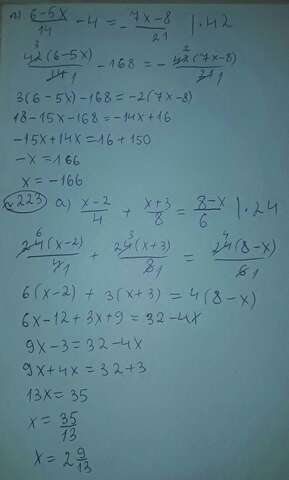 г) (6-5x)/14 - 4 = - (7x-8)/21 | · 42
42³(6-5x)/14₁ - 168 = - 42²(7x-8)/21₁
3(6-5x)-168=-2(7x-8)
18-15x-168=-14x+16
-15x+14x=16+150
-x=166
x=-166
№223 а) (x-2)/4 + (x+3)/8 = (8-x)/6 | · 24
24⁶(x-2)/4₁ + 24³(x+3)/8₁ = 24⁴(8-x)/6₁
6(x-2)+3(x+3)=4(8-x)
6x-12+3x+9=32-4x
9x-3=32-4x
9x+4x=32+3
13x=35
x=35/13
x=2 9/13